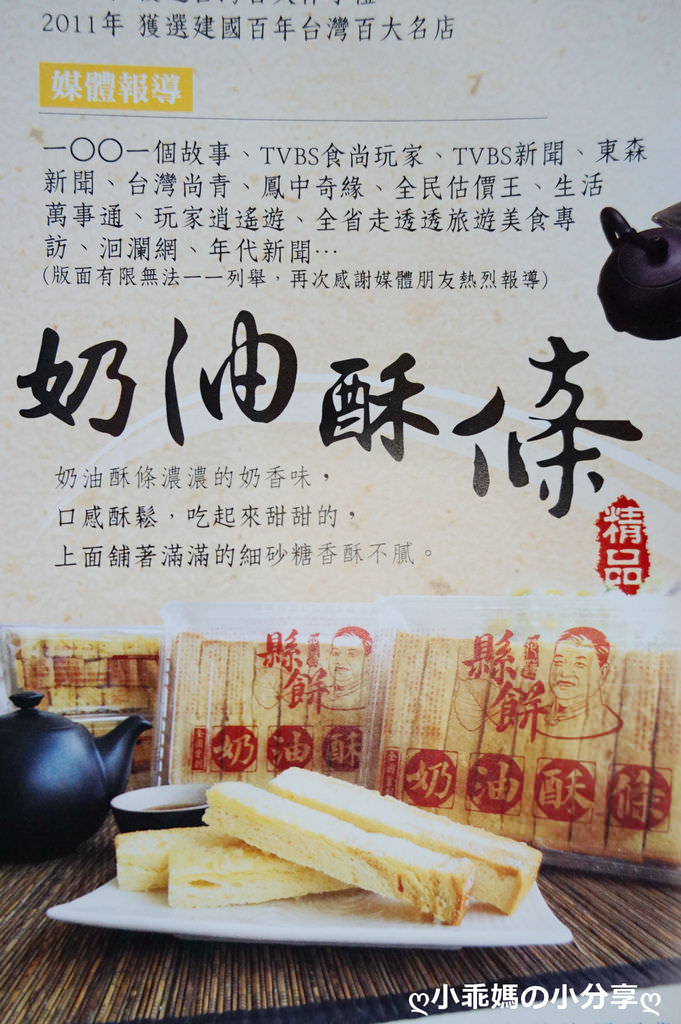 2011年 獲選建國百年台灣百大名店
媒體報導
一〇〇一個故事、TVBS食尚玩家、TVBS新聞、東森
新聞、台灣尚青、鳳中奇緣、全民估價王、生活
萬事通、玩家逍遙遊、全省走透透旅遊美食專
訪、洄瀾網、年代新聞…
(版面有限無法一一列舉，再次感謝媒體朋友熱烈報導)
奶油酥條
奶油酥條濃濃的奶香味，
口感酥鬆，吃起來甜甜的，
上面舖著滿滿的細砂糖香酥不膩。
精品
縣餅
奶油酥
縣餅
奶油酥條
ღ小乖媽の小分享ღ